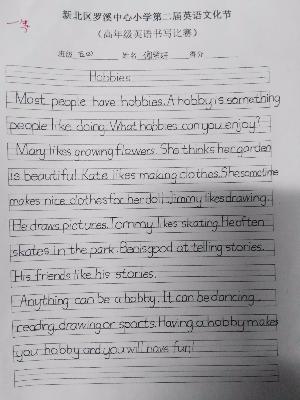 新北区罗溪中心小学第二届英语文化节
(高年级英语书写比赛)
班级 姓名 得分
Hobbies
Most people have hobbies. A hobby is something
people like doing. What hobbies can you enjoy?
Mary likes growing flowers. She thinks her garden
is beautiful. Kate likes making clothes. She sometime
makes nice clothes for her doll. Jimmy likes drawing.
He draws pictures. Tommy likes skating. He often
skates in the park. Ben is good at telling stories.
His friends like his stories.
Anything can be a hobby. It can be dancing
reading, drawing or sports. Having a hobby makes
you hobby and you will have fun!